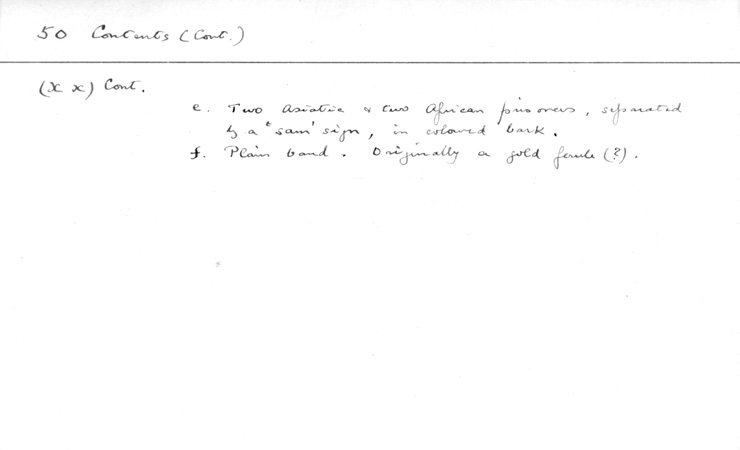 50 Contents (Cont.)
(xx) Cont.
e. Two Asiatic & two African prisoners, separated
by a 'sam' sign, in coloured bark.
f. Plain band. Originally a gold ferule (?).